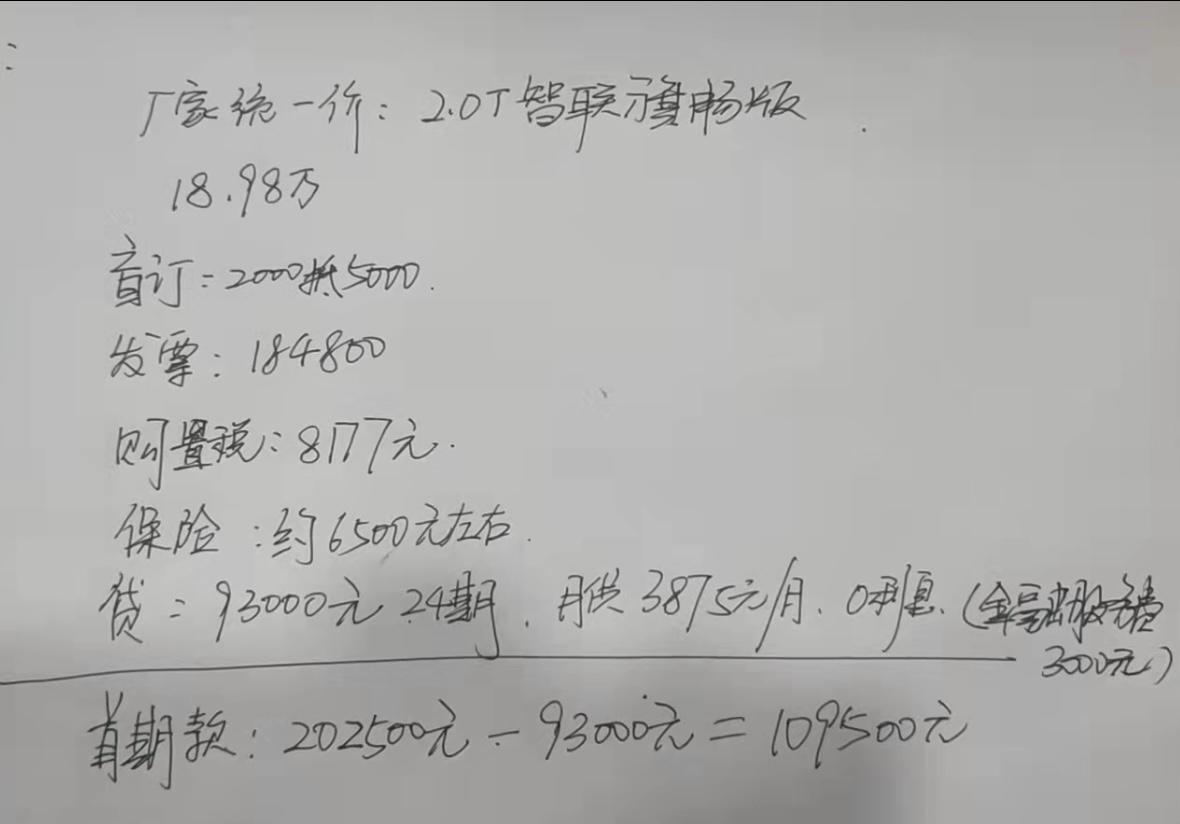 厂家统一价：2.0T智联旗畅版
18.98万
首订：2000抵5000.
发票：184800
购置税：8177元.
保险：约6500元左右.
贷：93000元24期，月供3875元/月、0利息.（金融服务费
3000元）
首期款：202500元－93000元＝109500元